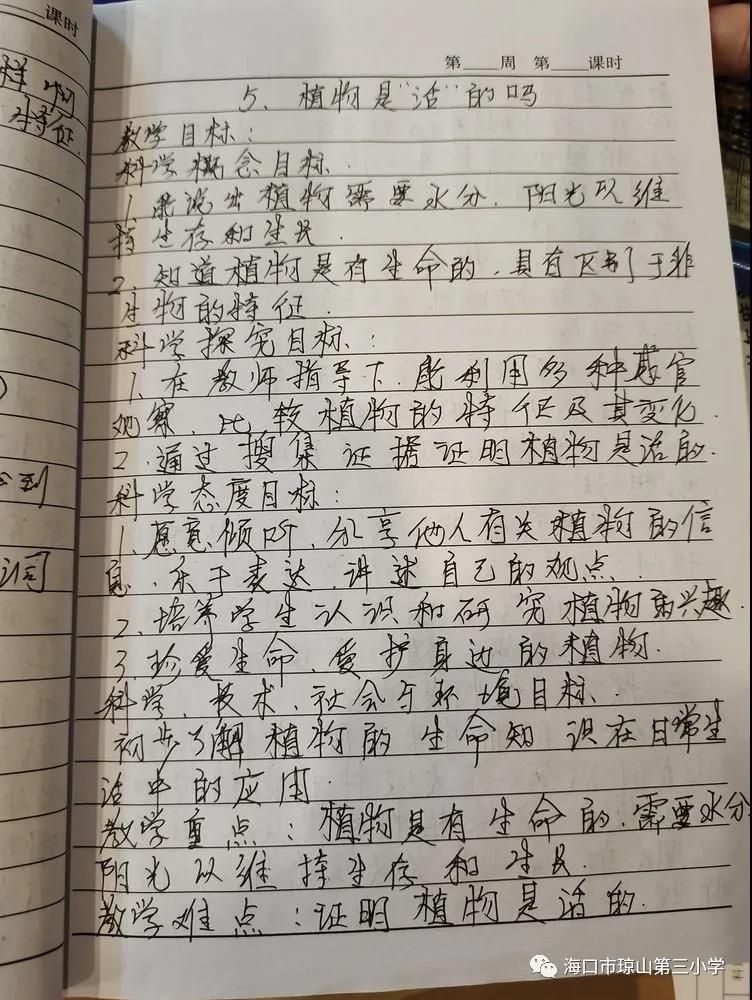 课时
样
特征
到
词
第____周 第____课时
5、植物是"活"的吗
教学目标：
科学概念目标.
1、能说出植物需要水分、阳光以维
持生存和生长.
2、知道植物是有生命的，具有区别于非
生物的特征.
科学探究目标：
1、在教师指导下，能利用多种感官
观察、比较植物的特征及其变化.
2、通过搜集证据证明植物是活的.
科学态度目标：
1、愿意倾听、分享他人有关植物的信
息，乐于表达、讲述自己的观点.
2、培养学生认识和研究植物的兴趣
3、珍爱生命、爱护身边的植物.
科学、技术、社会与环境目标.
初步了解植物的生命知识在日常生
活中的应用.
教学重点：植物是有生命的，需要水分
阳光以维持生存和生长.
教学难点：证明植物是活的.
海口市琼山第三小学